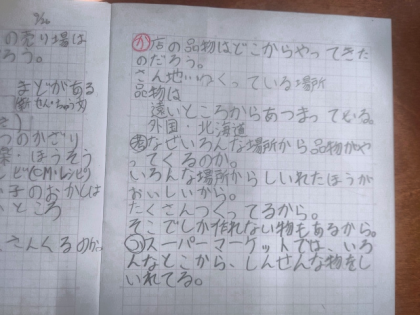 7/20
の売り場は
ろう。
まどがある
つのかざり
菜・ほうそう
ビ(CM・レシピ)
子のおかしは
ところ
さんくるのか。
か店の品物はどこからやってきた
のだろう。
さん地いつくっている場所
品物は
遠いところからあつまっている。
外国・北海道
なぜいろんな場所から品物がや
ってくるのか。
いろんな場所からしいれたほうが
おいしいから。
たくさんつくってるから。
そこでしか作れない物もあるから。
つスーパーマーケットでは、いろ
んなとこから、しんせんな物をし
いれてる。